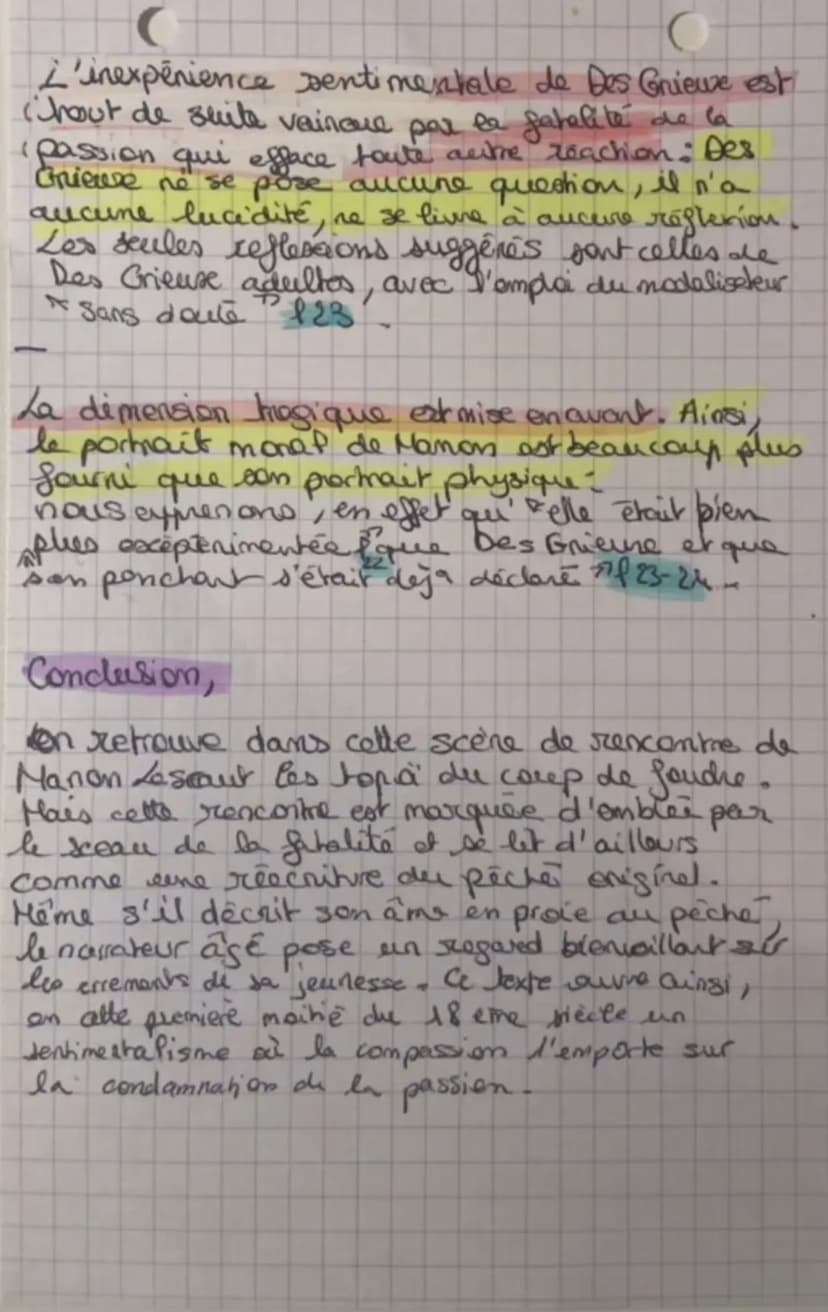 L'inexpérience sentimentale de Des Grieux est
tout de suite vaincue par la fatalité de la
passion qui efface toute autre réaction : Des
Grieux ne se pose aucune question, il n'a
aucune lucidité, ne se livre à aucune réflexion.
Les seules reflexions suggérés sont celles de
Des Grieux adultes, avec l'emploi du modalisateur
"sans doute" l 23.
—
La dimension tragique est mise en avant. Ainsi,
le portrait moral de Manon est beaucoup plus
fourni que son portrait physique :
nous apprenons, en effet qu'"elle était bien
plus expérimentée" l 22 que Des Grieux et que
"son penchant s'était déjà déclaré" l 23-24.
Conclusion,
On retrouve dans cette scène de rencontre de
Manon Lescaut les topoï du coup de foudre.
Mais cette rencontre est marquée d'emblée par
le sceau de la fatalité et se lit d'ailleurs
comme une réécriture du péché original.
Même s'il décrit son âme en proie au péché,
le narrateur âgé pose un regard bienveillant sur
les errements de sa jeunesse. Ce texte ouvre ainsi,
en cette première moitié du 18 eme siècle un
sentimentalisme où la compassion l'emporte sur
la condamnation de la passion.